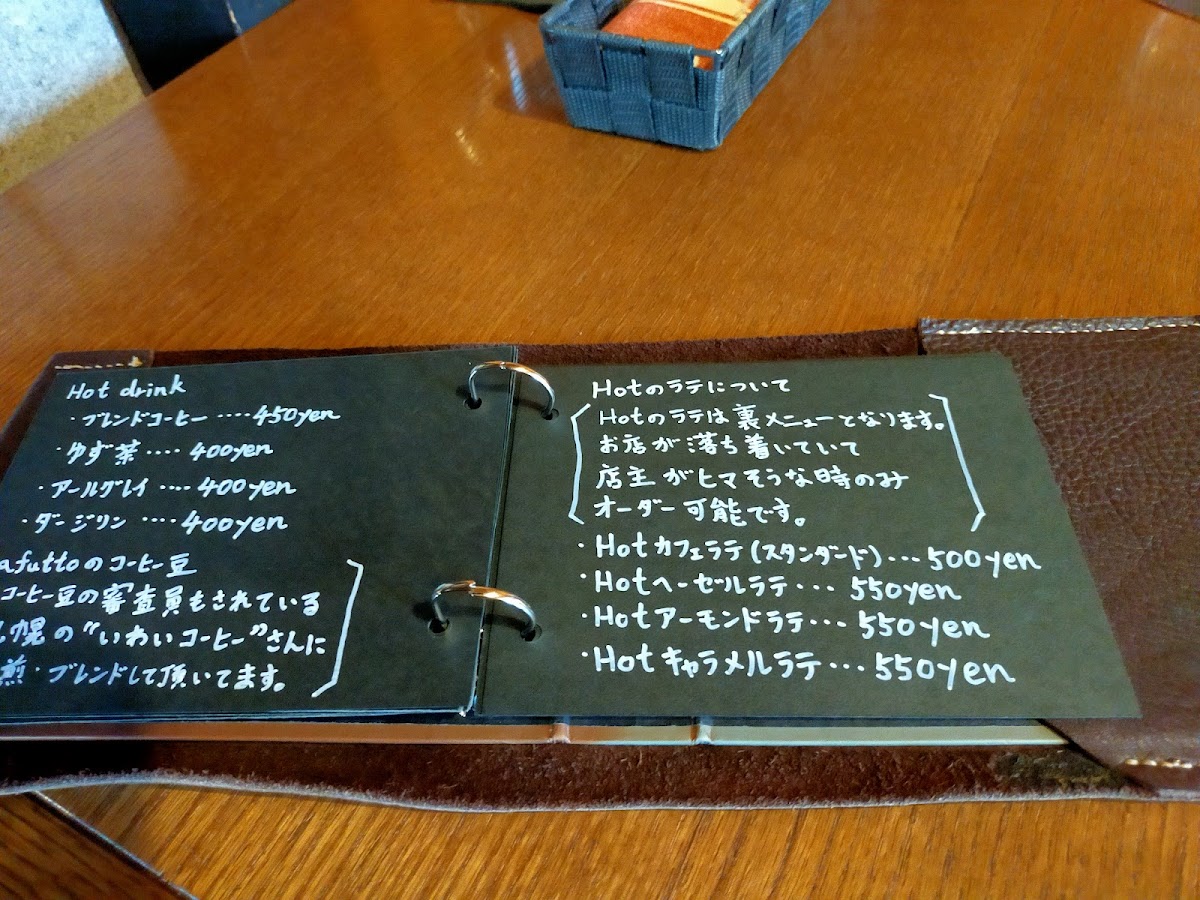 Hot drink
・ブレンドコーヒー ････450yen
・ゆず茶 ････ 400yen
・アールグレイ ････400yen
・ダージリン ････400yen
afuttoのコーヒー豆
コーヒー豆の審査員もされている
幌の"いわいコーヒー"さんに
煎・ブレンドして頂いてます。
Hotのラテについて
Hotのラテは裏メニューとなります。
お店が落ち着いていて
店主がヒマそうな時のみ
オーダー可能です。
・Hotカフェラテ(スタンダード)…500yen
・Hotヘーゼルラテ… 550yen
・Hotアーモンドラテ… 550yen
・Hotキャラメルラテ…550yen